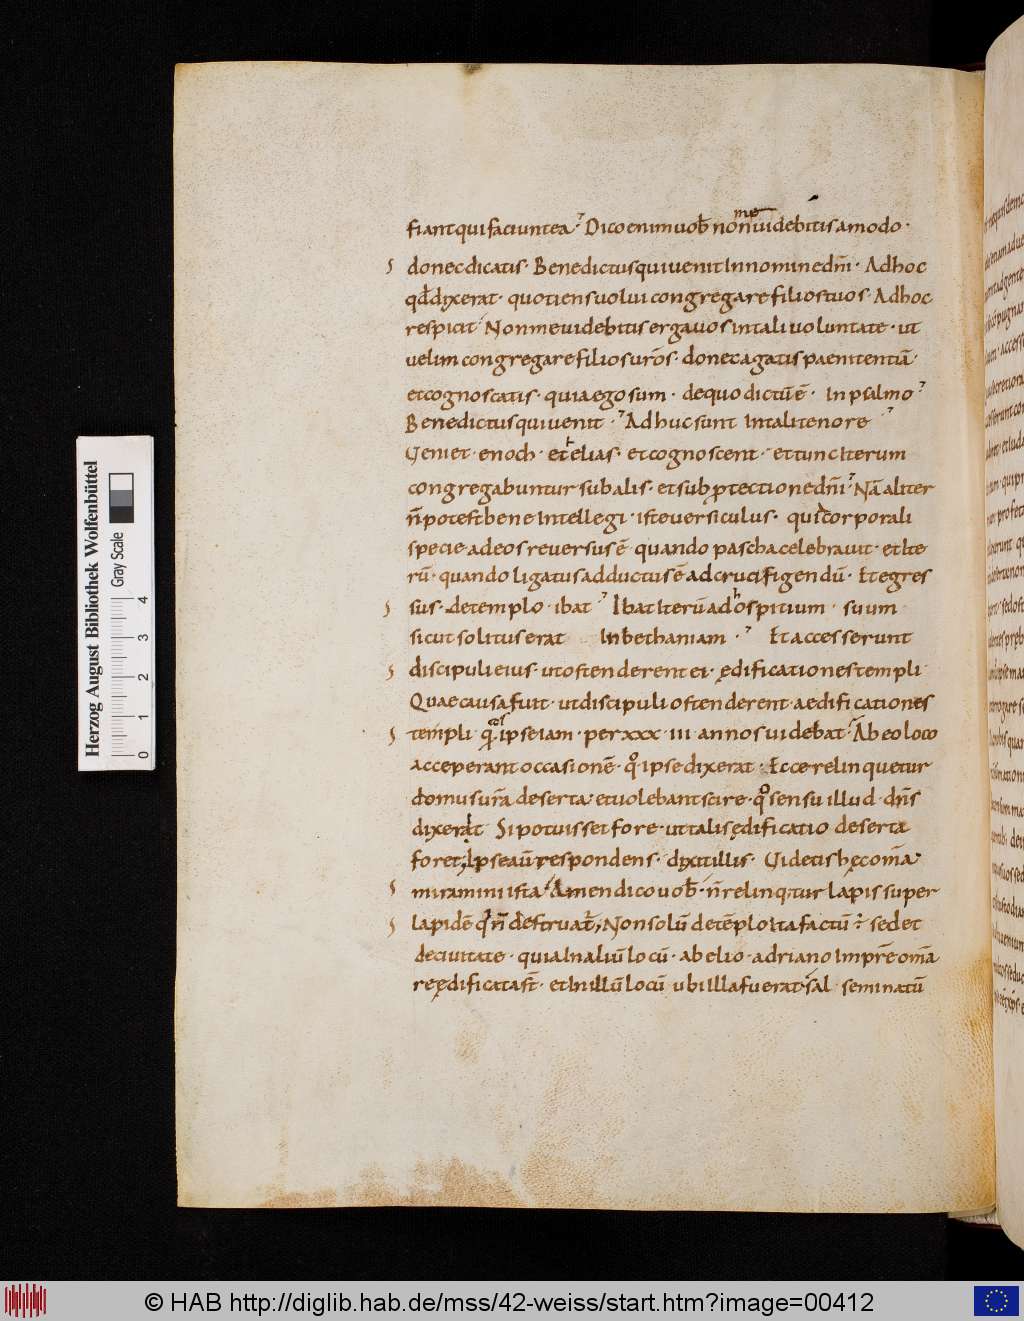 fiant qui faciunt ea. Dico enim uob̄ non me uidebitis amodo.
donec dicatis. Benedictus qui uenit In nomine dn̄i. Ad hoc
qd̄ dixerat. quotiens uolui congregare filios tuos. Ad hoc
respicit Non me uidebitis erga uos in tali uoluntate. ut
uelim congregare filios ur̄os. donec agatis paenitentiā.
et cognoscatis. quia ego sum. de quo dictū ē. In psalmo
Benedictus qui uenit. Adhuc sunt In tali tenore
Ueniet. enoch. et elias. et cognoscent. et tunc Iterum
congregabuntur sub alis. et sub protectione dn̄i. Nā aliter
n̄ potest bene Intellegi. iste uersiculus. qui corporali
specie ad eos reuersus ē quando pascha celebrauit. et Ite
rū. quando ligatus adductus ē ad crucifigendū. Et egres
sus. de templo. ibat Ibat Iterū ad hospitium. suum
sicut solitus erat In bethaniam. Et accesserunt
discipuli eius. ut ostenderent ei. ędificationes templi
Quae causa fuit. ut discipuli ostenderent. aedificationes
templi. ipse iam. per xxx. iii annos uidebat. Ab eo loco
acceperant occasionē. qo ipse dixerat. Ecce relinquetur
domus ur̄a deserta. et uolebant scire. qo sensu illud. dn̄s
dixerat Si potuisset fore. ut talis ędificatio deserta
foret; Ipse aū respondens. dixit illis. Uidetis hęc om̄a.
miramini ista. Amen dico uob̄. n̄ relinq;tur lapis super
lapidē q n̄ destruat̄; Non solū de tēplo Ita factū. sed et
de ciuitate. quia In aliū locū. ab elio. adriano Impr̄e om̄a
reędificata st̄. et In illū locū ubi illa fuerat. sal seminatū
Herzog August Bibliothek Wolfenbüttel
Gray Scale
0 1 2 3 4
© HAB http://diglib.hab.de/mss/42-weiss/start.htm?image=00412